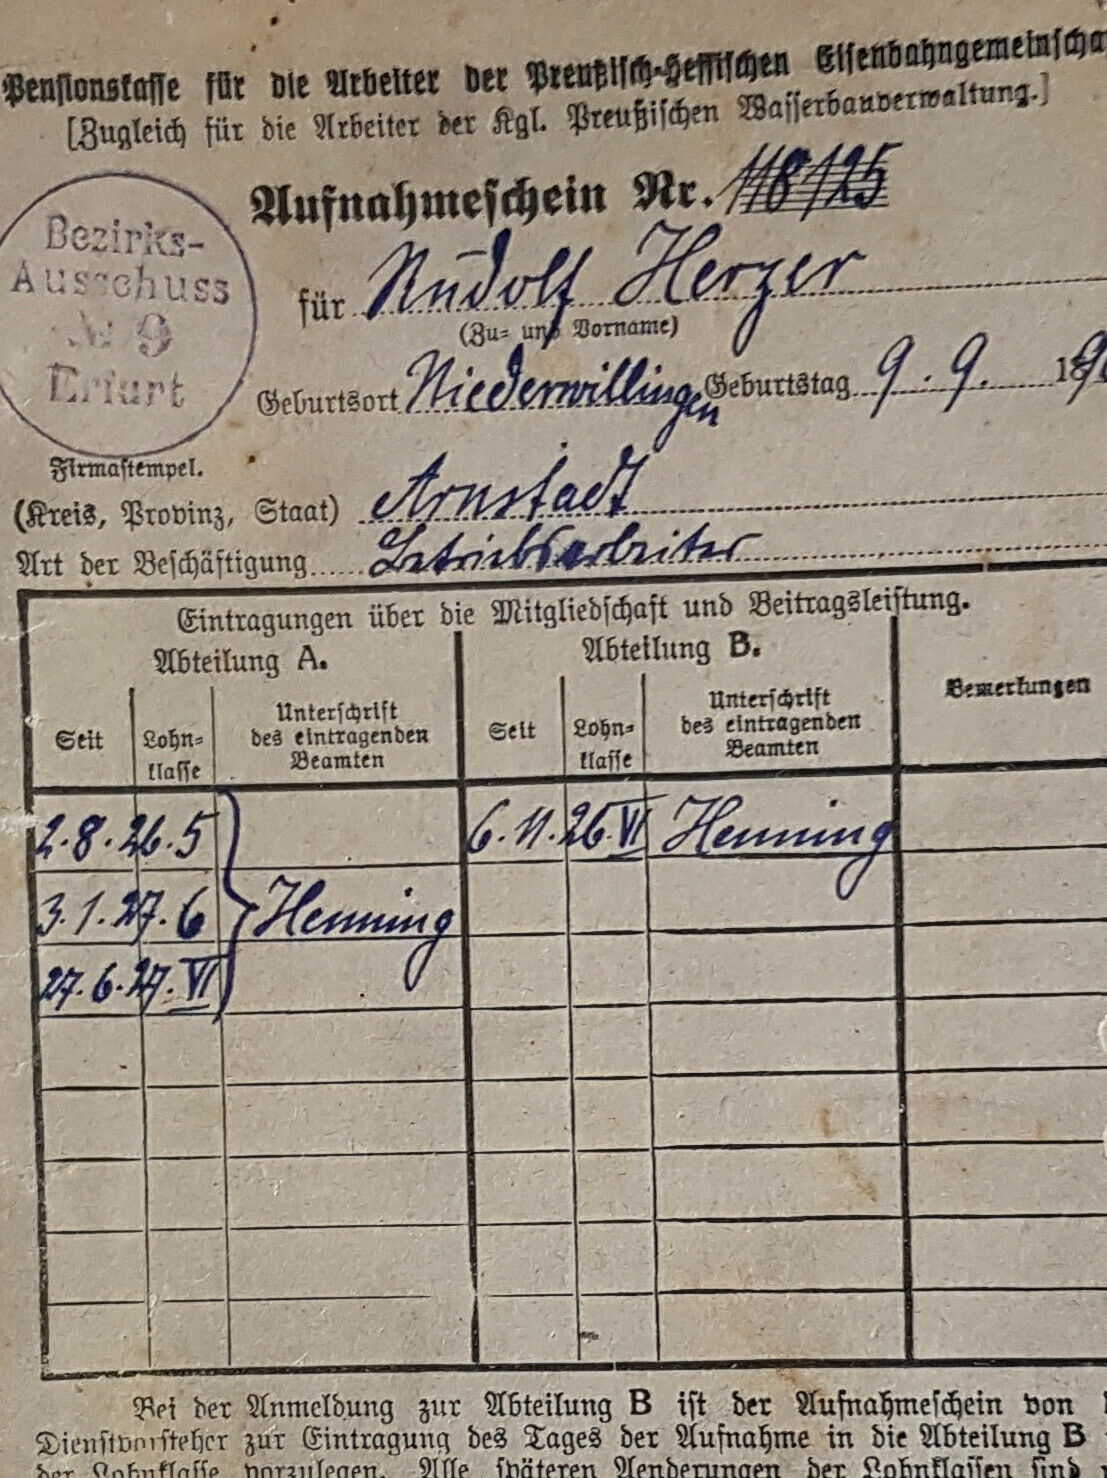 Pensionskasse für die Arbeiter der Preußisch-Hessischen
[Zugleich für die Arbeiter der Kgl. Preußischen Wasserbauverwaltung.]
Aufnahmeschein Nr. 118125
Bezirks-
Ausschuss
№ 9
Erfurt
für Rudolf Herzer
(Zu- und Vorname)
Geburtsort Niederwillingen Geburtstag 9. 9.
Firmastempel.
(Kreis, Provinz, Staat) Arnstadt
Art der Beschäftigung Betriebsarbeiter
Eintragungen über die Mitgliedschaft und Beitragsleistung.
Abteilung A. Abteilung B. Bemerkungen
Seit Lohn-klasse Unterschrift des eintragenden Beamten Seit Lohn-klasse Unterschrift des eintragenden Beamten
2.8.26. 5 6.11.26. VI Henning
3.1.27. 6 Henning
27.6.27. VI
Bei der Anmeldung zur Abteilung B ist der Aufnahmeschein von
Dienstvorsteher zur Eintragung des Tages der Aufnahme in die Abteilung B
der Lohnklasse vorzulegen. Alle späteren Aenderungen der Lohnklassen sind